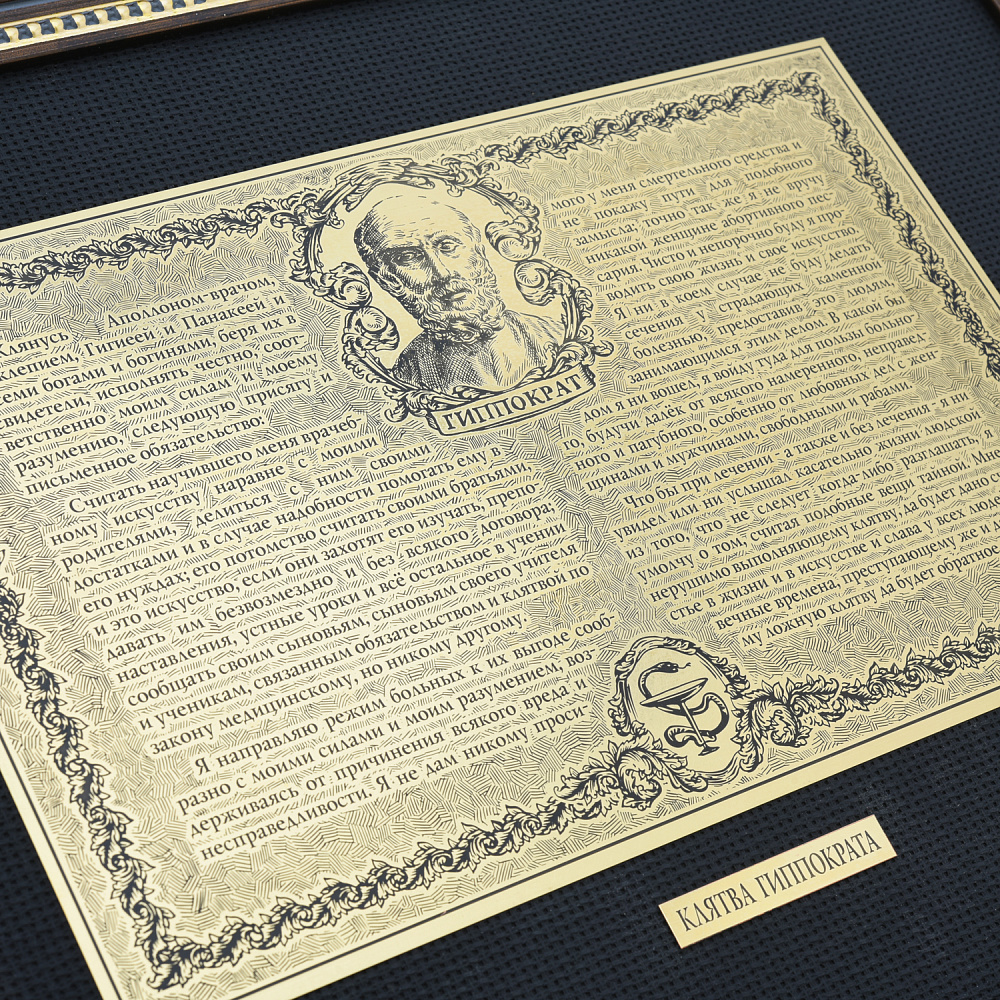 Клянусь Аполлоном-врачом,
клепием, Гигиеей и Панакеей и
семи богами и богинями, беря их в
видетели, исполнять честно, соот-
ветственно моим силам и моему
разумению, следующую присягу и
письменное обязательство:
Считать научившего меня врачеб-
ному искусству наравне с моими
родителями, делиться с ним своими
достатками и в случае надобности помогать ему в
его нуждах; его потомство считать своими братьями,
и это искусство, если они захотят его изучать, препо-
давать им безвозмездно и без всякого договора;
наставления, устные уроки и всё остальное в учении
сообщать своим сыновьям, сыновьям своего учителя
и ученикам, связанным обязательством и клятвой по
закону медицинскому, но никому другому.
Я направляю режим больных к их выгоде сооб-
разно с моими силами и моим разумением, воз-
держиваясь от причинения всякого вреда и
несправедливости. Я не дам никому проси-
ГИППОКРАТ
мого у меня смертельного средства и
не покажу пути для подобного
замысла; точно так же я не вручу
никакой женщине абортивного пес-
сария. Чисто и непорочно буду я про-
водить свою жизнь и своё искусство.
Я ни в коем случае не буду делать
сечения у страдающих каменной
болезнью, предоставив это людям,
занимающимся этим делом. В какой бы
дом я ни вошел, я войду туда для пользы больного,
будучи далёк от всякого намеренного, неправед-
ного и пагубного, особенно от любовных дел с жен-
щинами и мужчинами, свободными и рабами.
Что бы при лечении - а также и без лечения - я ни
увидел или ни услышал касательно жизни людской
из того, что не следует когда-либо разглашать, я
умолчу о том, считая подобные вещи тайной. Мне,
нерушимо выполняющему клятву, да будет дано с
стье в жизни и в искусстве и слава у всех лю
вечные времена, преступающему же и
му ложную клятву да будет обратное
КЛЯТВА ГИППОКРАТА